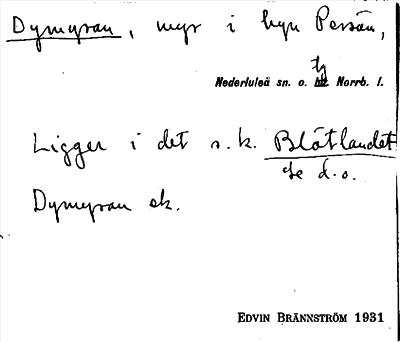 Dymyran, myr i byn Persön,
Nederluleå sn. o. tg Norrb. l.
Ligger i det s.k. Blötlandet
se d.o.
Dymyran ek.
EDVIN BRÄNNSTRÖM 1931